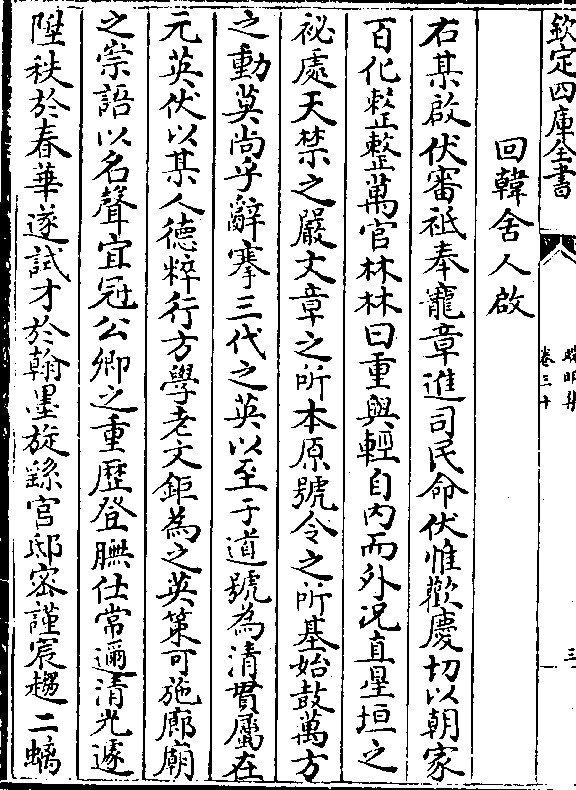 欽定四庫全書
端明集
卷三十
三
回韓舍人啟
右某啟伏審祗奉寵章進司民命伏惟歡慶切以朝家
百化整整萬官林林曰重與輕自内而外况直星垣之
祕處天禁之嚴文章之所本原號令之所基始鼓萬方
之動莫尚乎辭搴三代之英以至于道號為清貫屬在
元英伏以某人德粹行方學老文鉅為之英策可施廊廟
之崇語以名聲宜冠公卿之重歷登膴仕常邇清光遂
陞秩於春華遂試才於翰墨旋繇官邸宻謹宸趨二螭